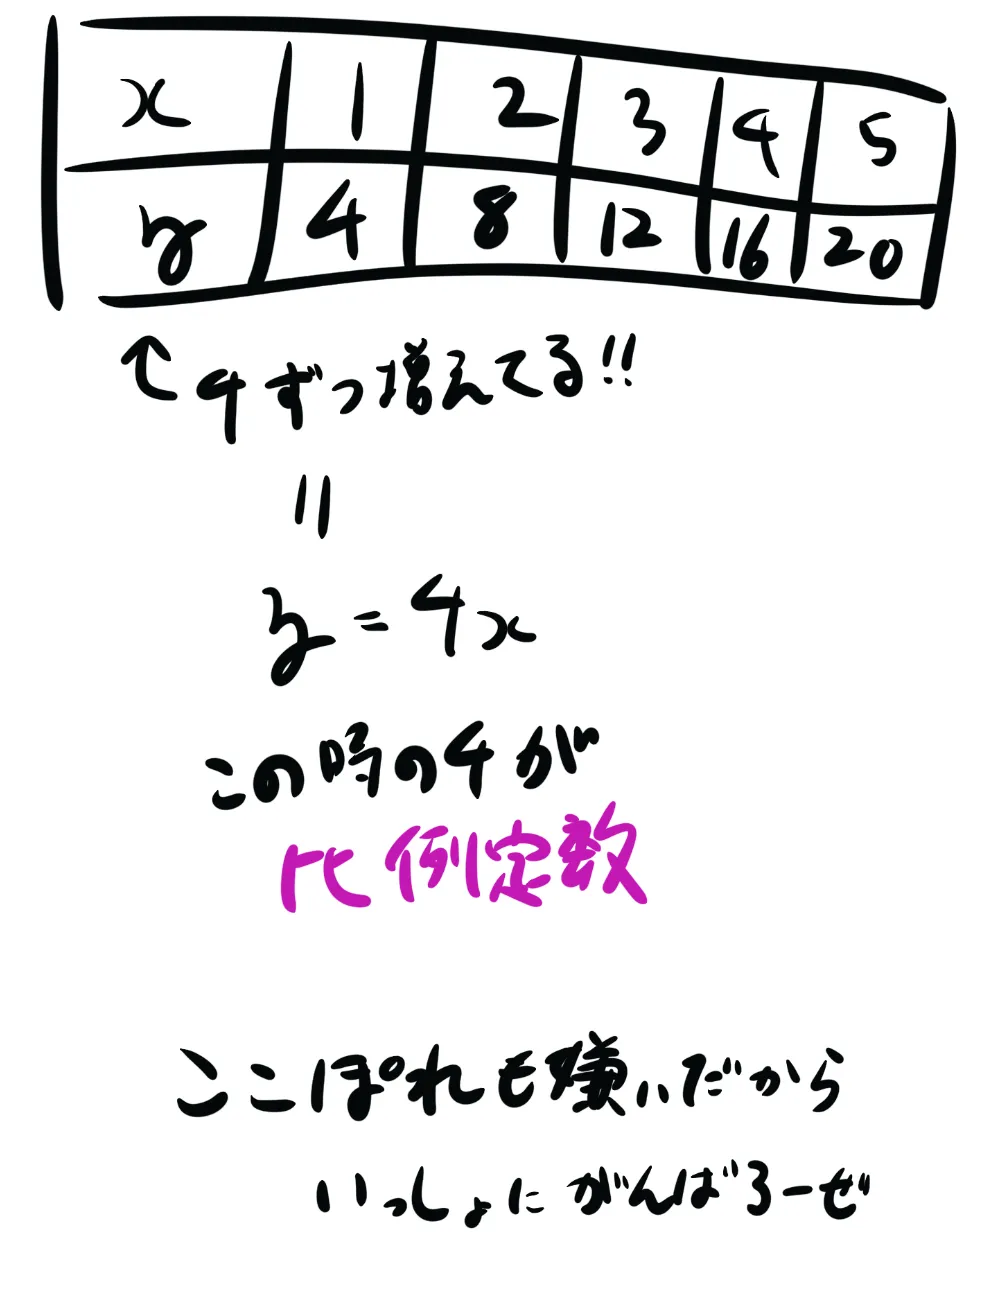 x 1 2 3 4 5
y 4 8 12 16 20
↑ 4ずつ増えてる!!
=
y = 4x
この時の4が
比例定数
ここぽれも嫌いだから
いっしょにがんばろーぜ